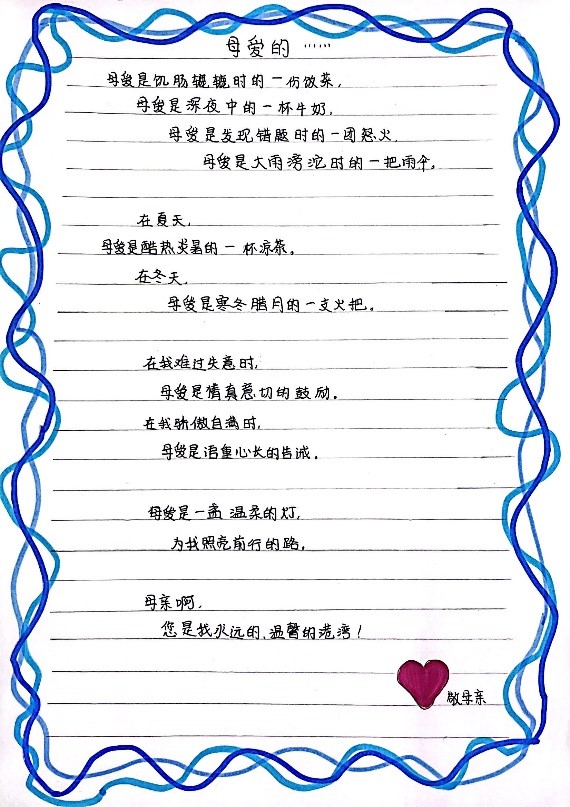 母爱的……
母爱是饥肠辘辘时的一份饭菜，
母爱是深夜中的一杯牛奶，
母爱是发现错题时的一团怒火，
母爱是大雨滂沱时的一把雨伞。
在夏天，
母爱是酷热炎暑的一杯凉茶。
在冬天，
母爱是寒冬腊月的一支火把。
在我难过失意时，
母爱是情真意切的鼓励。
在我骄傲自满时，
母爱是语重心长的告诫。
母爱是一盏温柔的灯，
为我照亮前行的路。
母亲啊，
您是我永远的、温馨的港湾！
致母亲